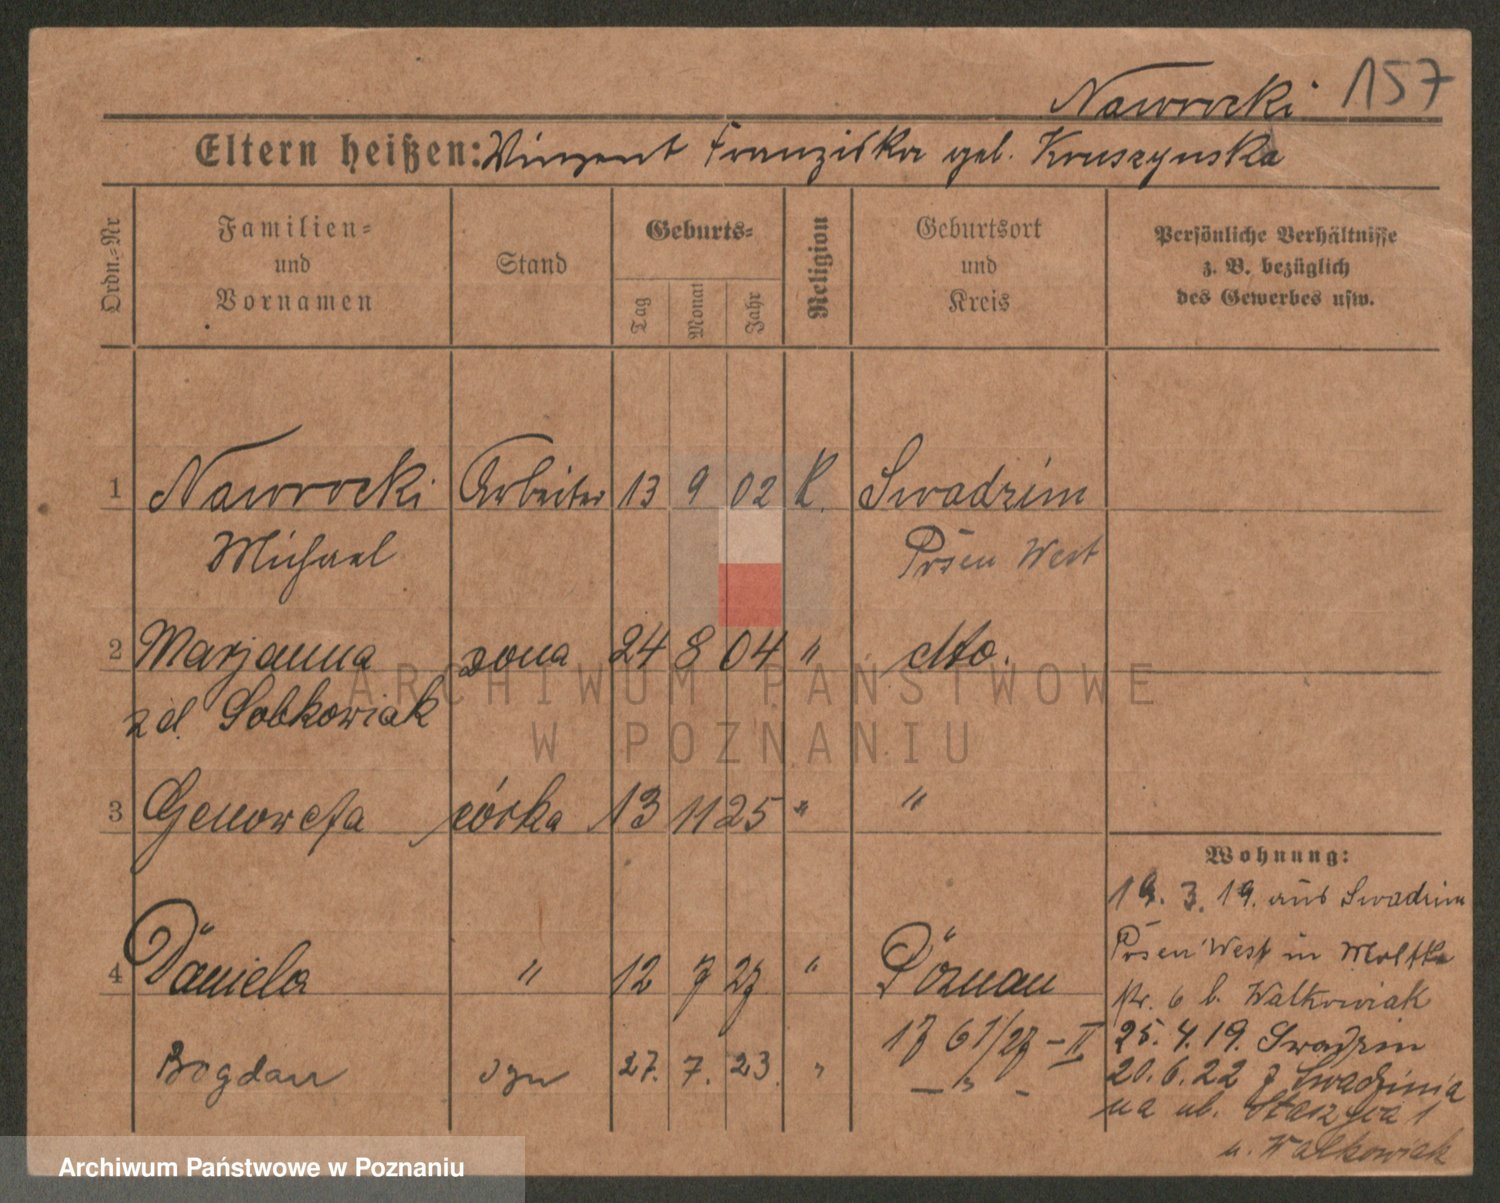 Nawrocki 157
Eltern heißen: Winzent Franziska geb. Kruszynska
Ordn.=Nr
Familien=
und
Vornamen
Stand
Geburts=
Tag
Monat
Jahr
Religion
Geburtsort
und
Kreis
Persönliche Verhältnisse
z. B. bezüglich
des Gewerbes usw.
1 Nawrocki Arbeiter 13 9 02 K. Swadzim
Michael Posen West
2 Marjanna żona 24 8 04 " dto.
z d. Sobkowiak
3 Genowefa córka 13 11 25 " "
4 Daniela " 12 7 27 " Poznan
17 61/27 - II
Bogdan syn 27. 7. 23. " - " -
Wohnung:
19. 3. 19. aus Swadzim
Posen West in Moltke
str. 6 b. Walkowiak
25. 4. 19. Swadzim
20. 6. 22 z Swadzimia
na ul. 1
u. Walkowiak
ARCHIWUM PAŃSTWOWE
W POZNANIU
Archiwum Państwowe w Poznaniu